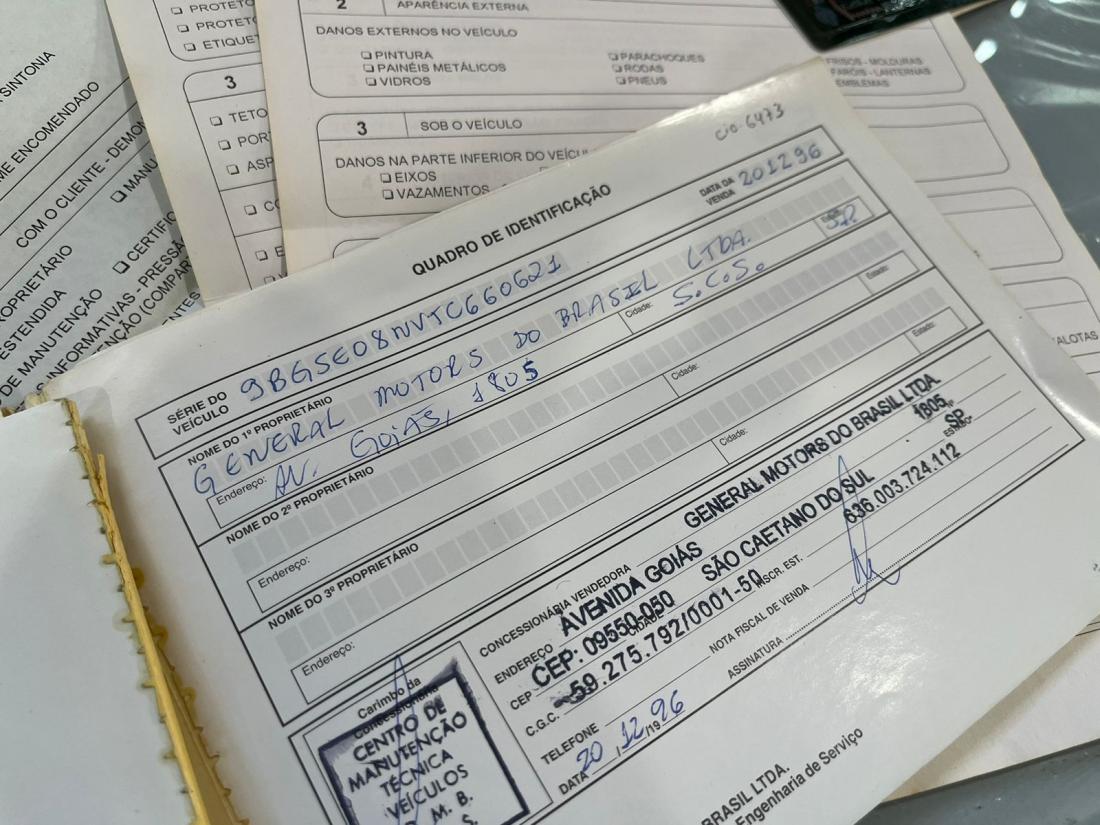 SINTONIA
ME ENCOMENDADO
COM O CLIENTE - DEMON
MANU
PROPRIETÁRIO
CERTIFIC
ESTENDIDA
INFORMATIVAS - PRESSÃ
DE MANUTENÇÃO
PROTETO
PROTETO
ETIQUET
3
TETO
POR
ASP
2 APARÊNCIA EXTERNA
DANOS EXTERNOS NO VEÍCULO
PINTURA
PAINÉIS METÁLICOS
VIDROS
PARACHOQUES
RODAS
PNEUS
FRISOS - MOLDURAS
FARÓIS - LANTERNAS
EMBLEMAS
3 SOB O VEÍCULO
DANOS NA PARTE INFERIOR DO VEÍCUL
EIXOS
VAZAMENTOS
ALOTAS
cio-6473
QUADRO DE IDENTIFICAÇÃO
SÉRIE DO VEÍCULO 9BGSE08NVTC660621 DATA DA VENDA 201296
NOME DO 1º PROPRIETÁRIO
GENERAL MOTORS DO BRASIL LTDA.
Endereço: AV. GOIÁS, 1805 Cidade: S.C.S. S.P.
NOME DO 2º PROPRIETÁRIO
Endereço: Cidade: Estado:
NOME DO 3º PROPRIETÁRIO
Endereço: Cidade: Estado:
Carimbo da Concessionária
CENTRO DE
MANUTENÇÃO
TÉCNICA
VEÍCULOS
M. B.
S.
CONCESSIONÁRIA VENDEDORA GENERAL MOTORS DO BRASIL LTDA.
ENDEREÇO AVENIDA GOIÁS 1805
CEP CEP: 09550-050 SÃO CAETANO DO SUL SP
C.G.C. 59.275.792/0001-50 INSCR. EST. 636.003.724.112
TELEFONE NOTA FISCAL DE VENDA
DATA 20/12/1996 ASSINATURA
BRASIL LTDA.
Engenharia de Serviço